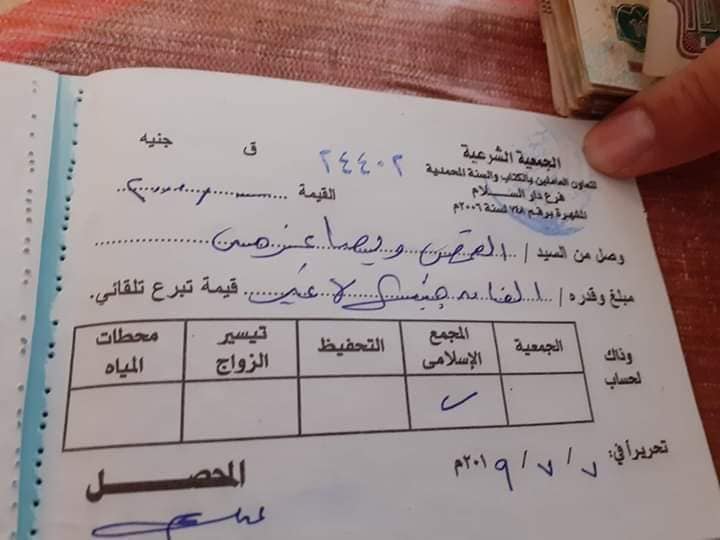 الجمعية الشرعية
لتعاون العاملين بالكتاب والسنة المحمدية
فرع دار الســلام
المشهرة برقم ٧٤٨ لسنة ٢٠٠٦م
ق جنيه
٢٤٤٠٢
القيمة
وصل من السيد / القمص ويصا
مبلغ وقدره / جنيه لا غير قيمة تبرع تلقائي.
وذلك لحساب
الجمعية
المجمع الإسلامى
التحفيظ
تيسير الزواج
محطات المياه
تحريراً في: ٧ / ٧ / ٢٠١٩م
المحصــــل